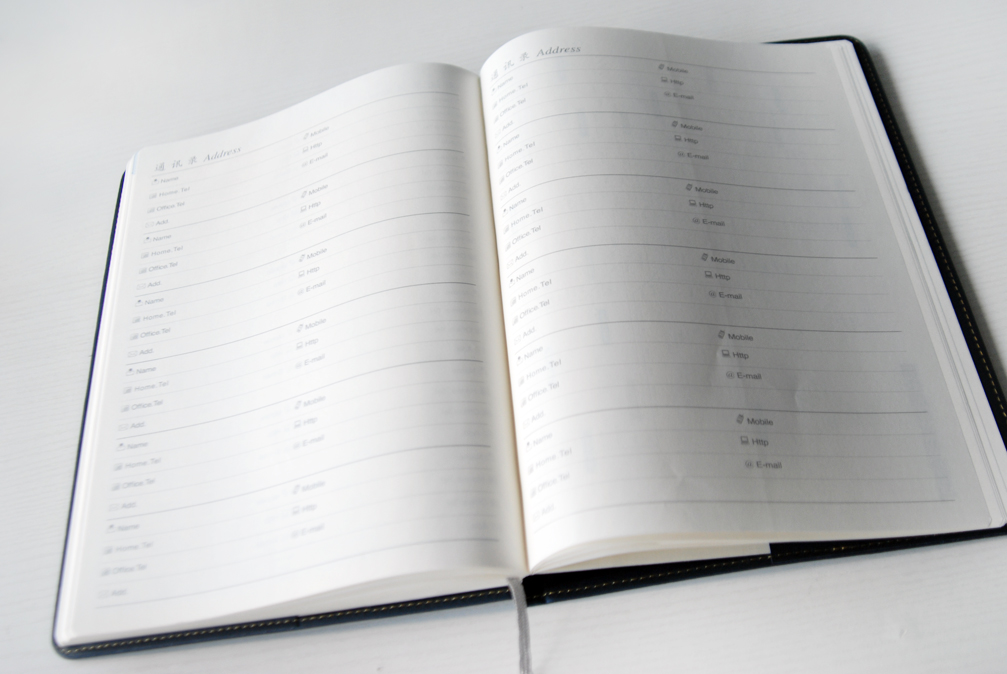 通 讯 录 Address
Name Mobile
Home.Tel Http
Office.Tel E-mail
Add.
Name Mobile
Home.Tel Http
Office.Tel E-mail
Add.
Name Mobile
Home.Tel Http
Office.Tel E-mail
Add.
Name Mobile
Home.Tel Http
Office.Tel E-mail
Add.
Name Mobile
Home.Tel Http
Office.Tel E-mail
Add.
Name Mobile
Home.Tel Http
Office.Tel E-mail
Add.
通 讯 录 Address
Name Mobile
Home.Tel Http
Office.Tel E-mail
Add.
Name Mobile
Home.Tel Http
Office.Tel E-mail
Add.
Name Mobile
Home.Tel Http
Office.Tel E-mail
Add.
Name Mobile
Home.Tel Http
Office.Tel E-mail
Add.
Name Mobile
Home.Tel Http
Office.Tel E-mail
Add.
Name Mobile
Home.Tel Http
Office.Tel E-mail
Add.